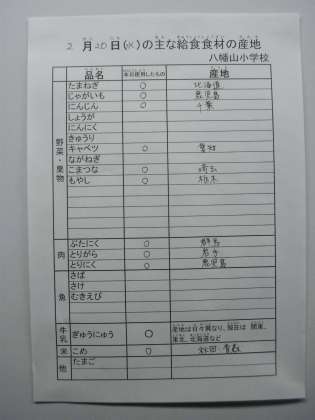 2月20日(水)の主な給食食材の産地
八幡山小学校
品名 本日使用したもの 産地
野菜・果物
たまねぎ ○ 北海道
じゃがいも ○ 鹿児島
にんじん ○ 千葉
しょうが
にんにく
きゅうり
キャベツ ○ 愛知
ながねぎ
こまつな ○ 埼玉
もやし ○ 栃木
肉
ぶたにく ○ 群馬
とりがら ○ 岩手
とりにく ○ 鹿児島
魚
さば
さけ
むきえび
牛乳 ぎゅうにゅう ○ 産地は日々異なり、現在は 関東、
東北、北海道など
米 こめ ○ 秋田・青森
他 たまご